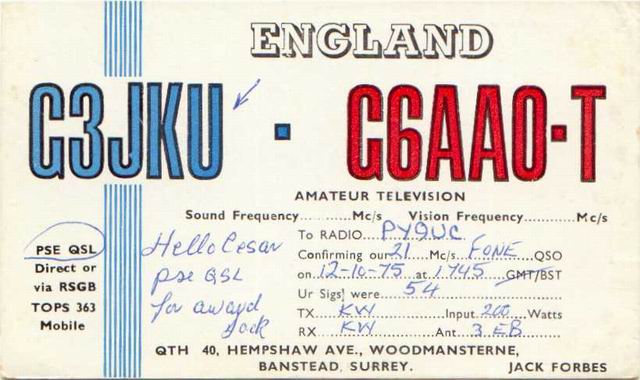 ENGLAND
G3JKU · G6AAO·T
AMATEUR TELEVISION
Sound Frequency..........Mc/s Vision Frequency..........Mc/s
To RADIO PY9UC
Confirming our 21 Mc/s FONE QSO
on 12-10-75 at 1745 GMT/BST
Ur Sigs! were 54
TX KW Input 200 Watts
RX KW Ant. 3 EB
PSE QSL
Direct or
via RSGB
TOPS 363
Mobile
Hello Cesar
pse QSL
for award
Jack
QTH 40, HEMPSHAW AVE., WOODMANSTERNE,
BANSTEAD, SURREY.
JACK FORBES